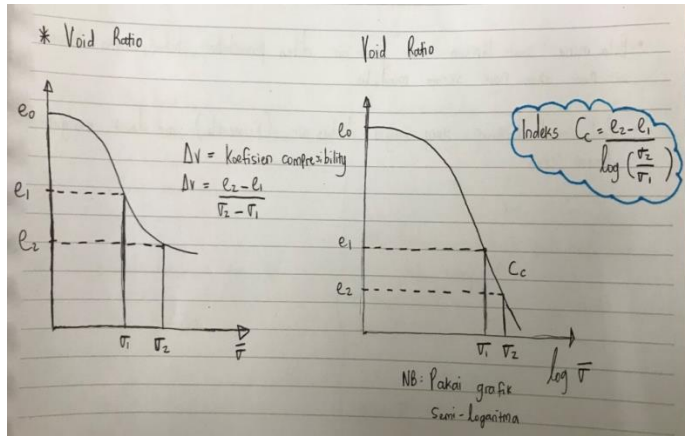 * Void Ratio
e0
e1
e2
Δv = Koefisien compresibility
Δv = e2 - e1
σ2 - σ1
σ1 σ2 σ̅
Void Ratio
e0
e1
e2
Cc
σ1 σ2
log σ̅
Indeks Cc = e2 - e1
log (σ2
σ1)
NB: Pakai grafik
Semi-logaritma